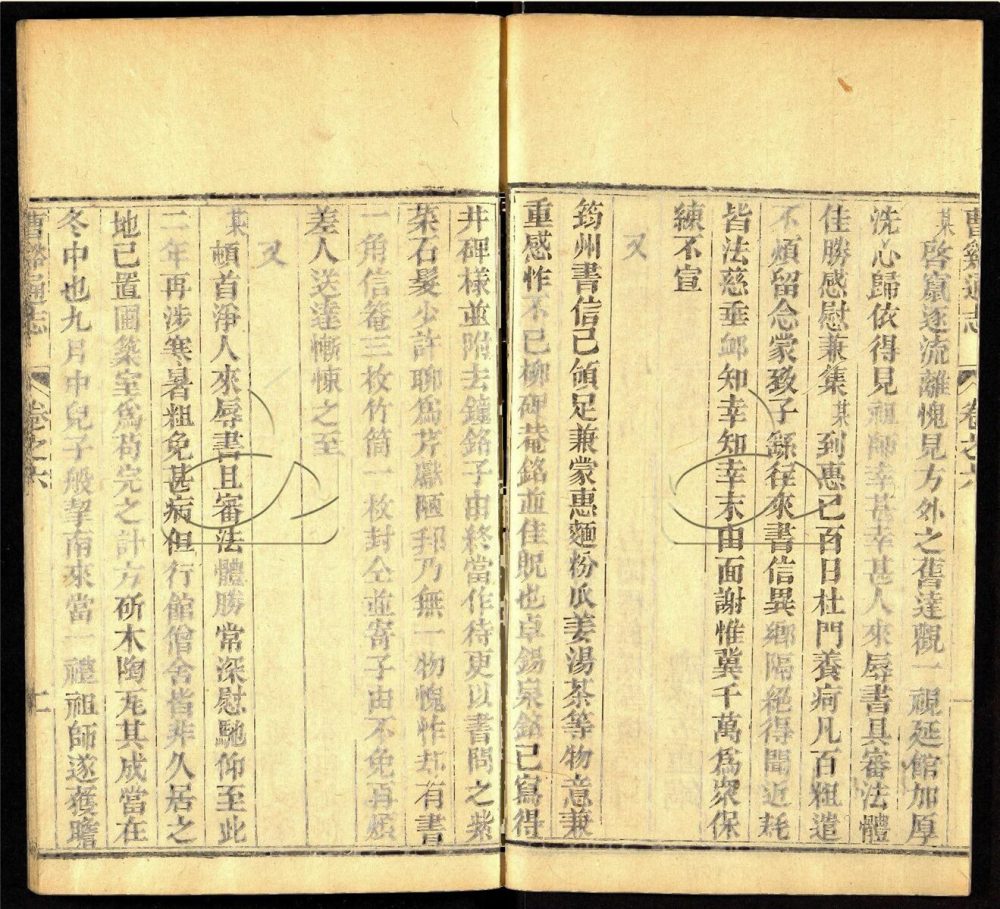 曹谿通志 卷之六
某啓竄逐流離愧見方外之舊達觀一視延館加厚
洗心歸依得見祖師幸甚幸甚人來辱書具審法體
佳勝感慰兼集某到惠已百日杜門養疴凡百粗遣
不煩留念蒙致子繇往來書信異鄉隔絕得聞近耗
皆法慈垂䘏知幸知幸未由面謝惟冀千萬爲衆保
練不宣
又
筠州書信已領足兼蒙惠麵粉瓜姜湯茶等物意兼
重感怍不已柳碑菴銘並佳貺也卓錫泉銘已寫得
井碑樣並附去鐘銘子由終當作待更以書問之紫
菜石髮少許聊爲芹獻陋邦乃無一物愧怍却有書
一角信菴三枚竹筒一枚封仝並寄子由不免再煩
差人送達慚悚之至
又
某頓首淨人來辱書且審法體勝常深慰馳仰至此
二年再涉寒暑粗免甚病但行館僧舍皆非久居之
地已置圃築室爲苟完之計方斫木陶瓦其成當在
冬中也九月中兒子般挈南來當一禮祖師遂獲瞻
曹谿通志 卷之六 十一